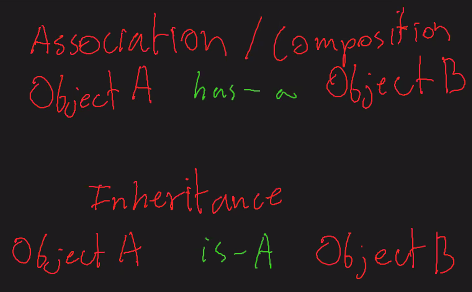 Association / Composition
Object A has-a Object B
Inheritance
Object A is-A Object B